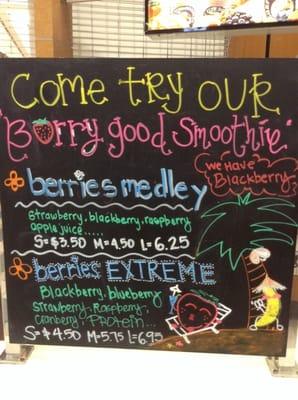 Come try our
"Berry good Smoothie"
We Have
Blackberry
berries medley
strawberry, blackberry, raspberry
apple juice.....
S=$3.50 M=4.50 L=6.25
berries EXTREME
Blackberry, blueberry
Strawberry, Raspberry,
Cranberry, PROTEIN...
S=$4.50 M=5.75 L=6.95